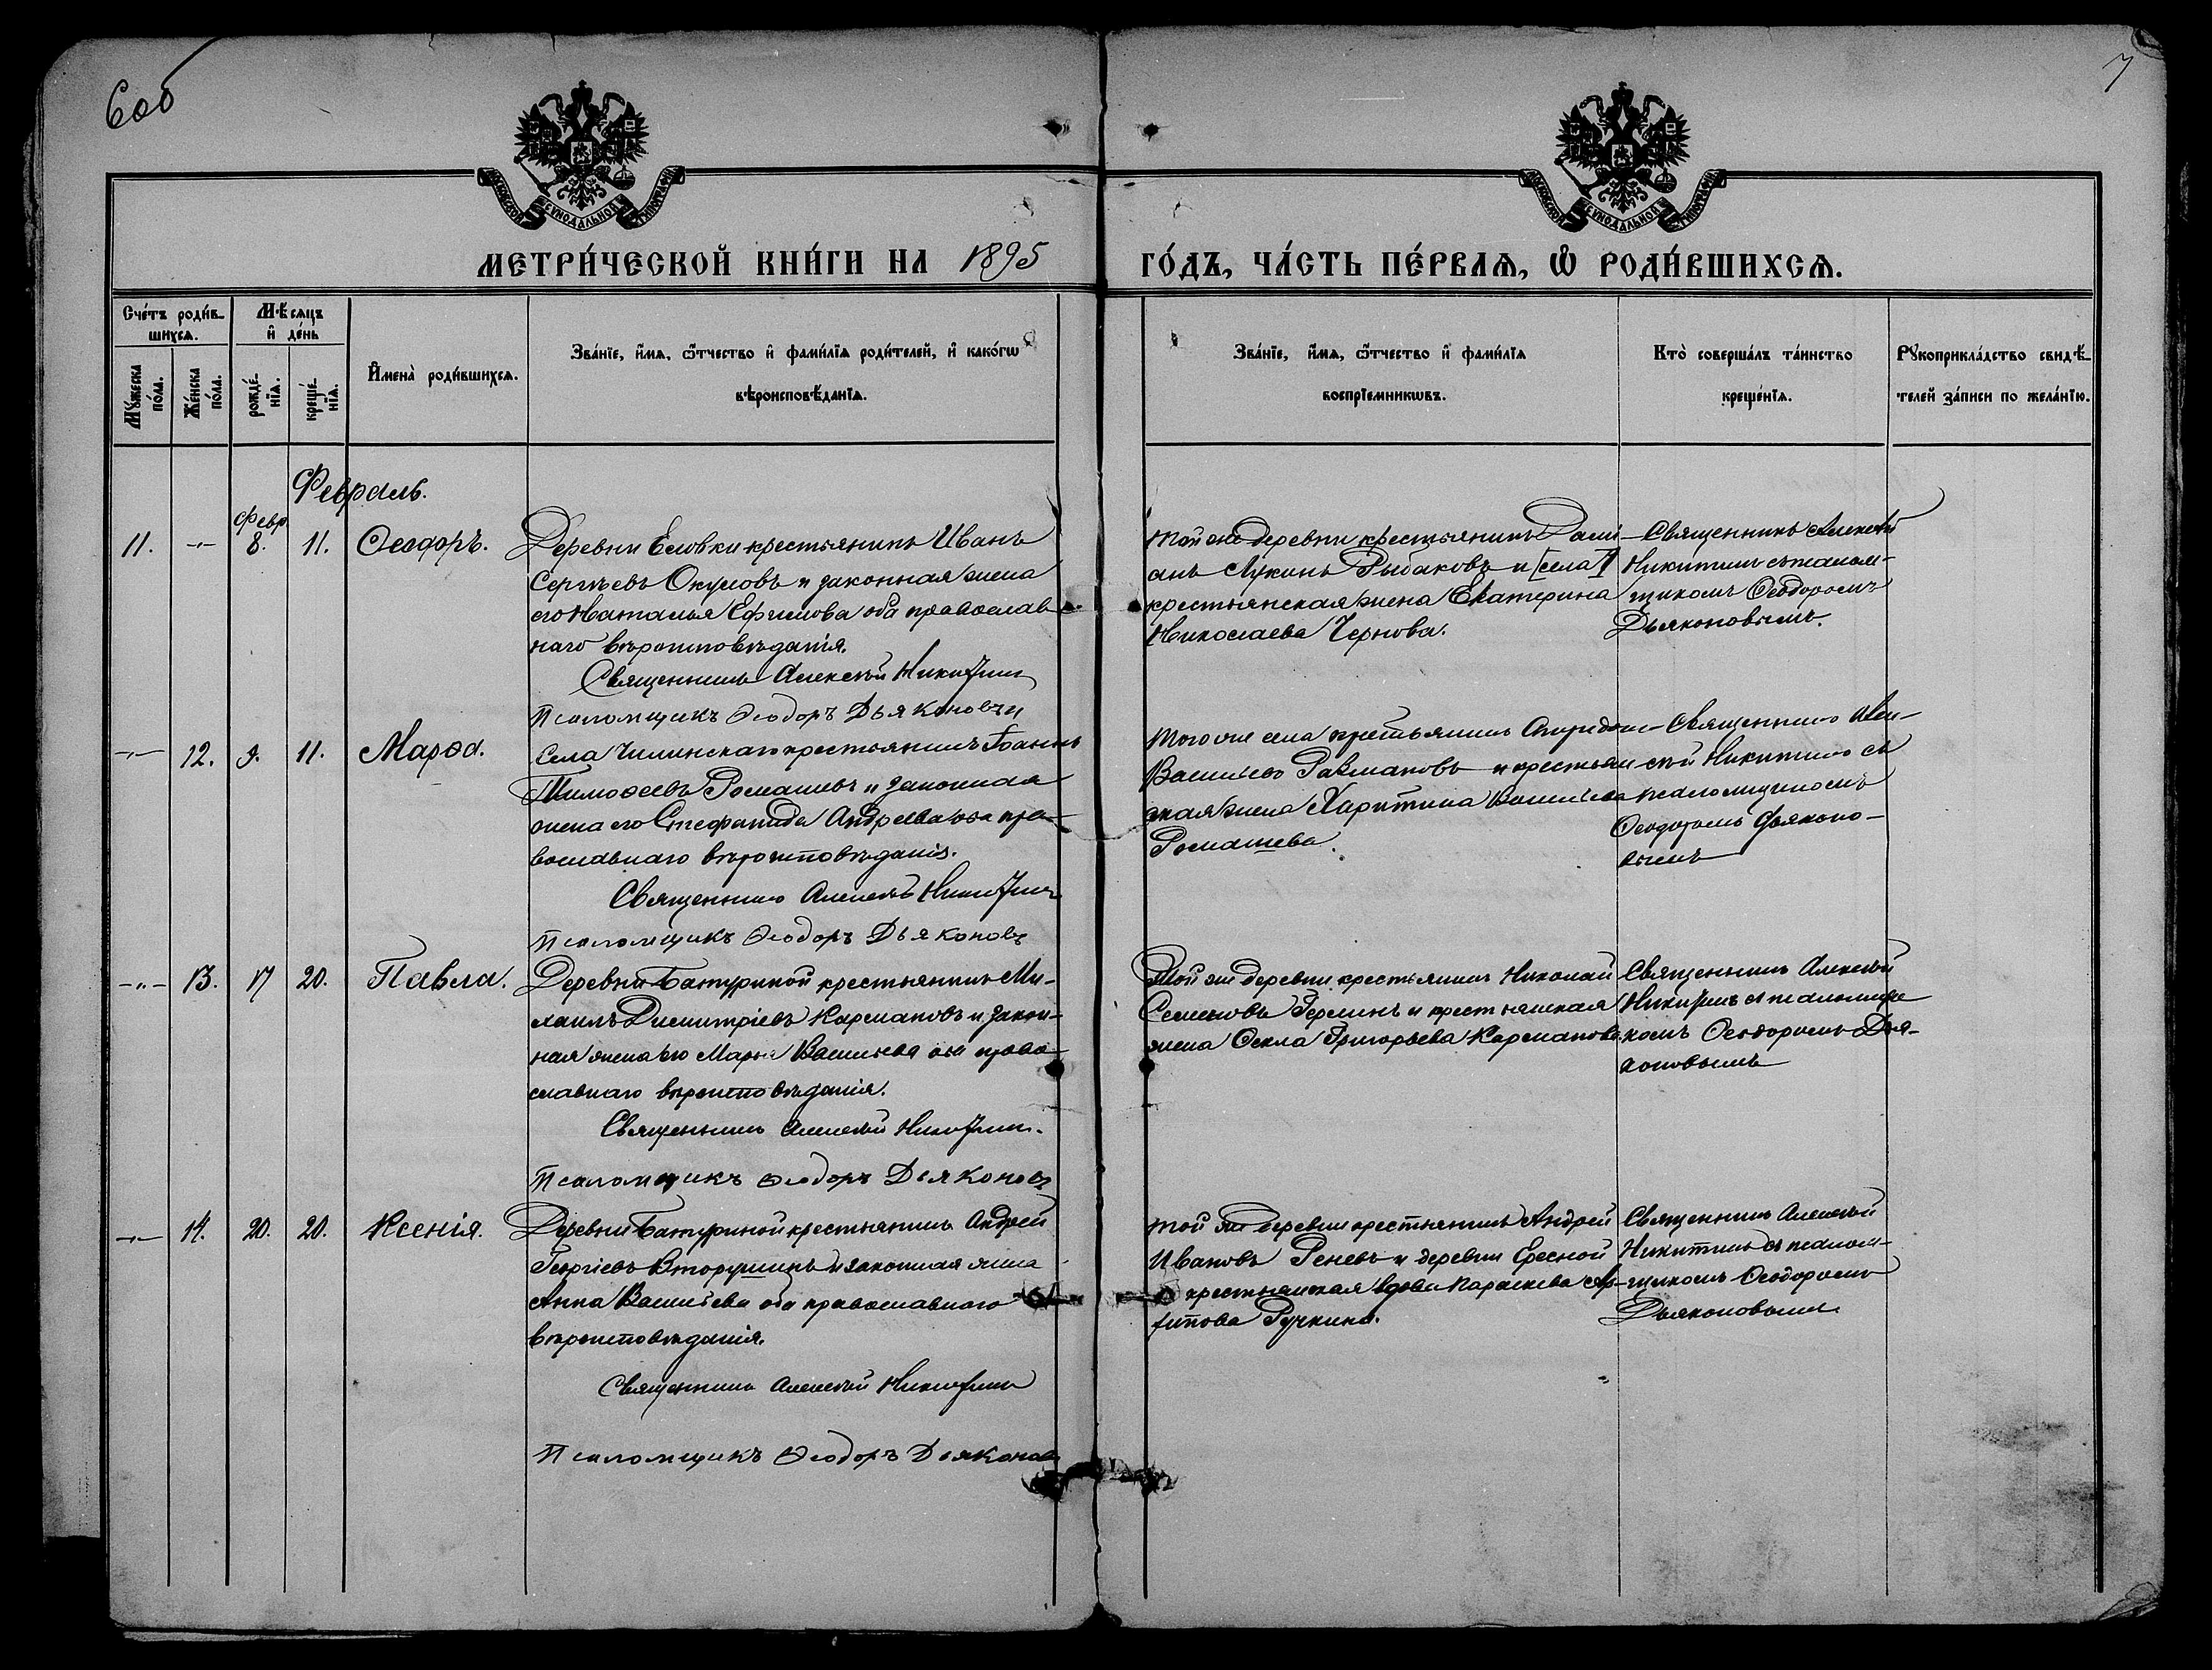 6об
7
МОСКОВСКОЙ СѴНОДАЛЬНОЙ ТИПОГРАФІИ
МОСКОВСКОЙ СѴНОДАЛЬНОЙ ТИПОГРАФІИ
МЕТРИ́ЧЕСКОЙ КНИ́ГИ НА 1895 ГО́ДЪ, ЧА́СТЬ ПЕ́РВАѦ, Ѡ҆ РОДИ́ВШИХСѦ.
Сче́тъ роди́в-
шихсѧ.
Мѣ́сѧцъ
и҆ де́нь
Мꙋ́жеска
по́ла.
Же́нска
по́ла.
рожде́-
нїѧ.
креще́-
нїѧ.
И҆мена̀ роди́вшихсѧ.
Зва́нїе, и҆́мѧ, ѻ҆́тчество и҆ фами́лїѧ роди́телей, и҆ како́гѡ
вѣроисповѣ́данїѧ.
Зва́нїе, и҆́мѧ, ѻ҆́тчество и҆ фами́лїѧ
воспрїе́мникѡвъ.
Кто̀ соверша́лъ та́инство
креще́нїѧ.
Рꙋкоприкла́дство свидѣ́-
телей за́писи по жела́нїю.
Февраль.
Февр.
11. -"- 8. 11. Ѳеодоръ.
Деревни Еловки крестьянинъ Иванъ
Сергѣевъ Окуловъ и законная жена
его Наталья Ефимова оба православ-
наго вѣроисповѣданія.
Священникъ Алексѣй Никитинъ
Псаломщикъ Ѳеодоръ Дьяконовъ
Той же деревни крестьянинъ Дамі-
анъ Лукинъ Рыбаковъ и [села]
крестьянская жена Екатерина
Николаева Чернова.
Священникъ Алексѣй
Никитинъ съ псалом-
щикомъ Ѳеодоромъ
Дьяконовымъ.
-"- 12. 9. 11. Марѳа.
Села Чилинскаго крестьянинъ Іоаннъ
Тимоѳеевъ Ромашевъ и законная
жена его Стефанида Андреева оба пра-
вославнаго вѣроисповѣданія.
Священникъ Алексѣй Никитинъ
Псаломщикъ Ѳеодоръ Дьяконовъ
Того же села крестьянинъ Спиридонъ
Васильевъ Рахмановъ и крестьян-
ская жена Харитина Васильева
Ромашева.
Священникъ Алек-
сѣй Никитинъ съ
псаломщикомъ
Ѳеодоромъ Дьяконо-
вымъ
-"- 13. 17 20. Павла.
Деревни Батуриной крестьянинъ Ми-
хаилъ Димитріевъ Кармановъ и закон-
ная жена его Марья Васильева оба право-
славнаго вѣроисповѣданія.
Священникъ Алексѣй Никитинъ.
Псаломщикъ Ѳеодоръ Дьяконовъ
Той же деревни крестьянинъ Николай
Семеновъ и крестьянская
жена Ѳекла Григорьева Карманова
Священникъ Алексѣй
Никитинъ съ псаломщи-
комъ Ѳеодоромъ Дья-
коновымъ
-"- 14. 20. 20. Ксенія.
Деревни Батуриной крестьянинъ Андрей
Георгіевъ Вторушинъ и законная жена
Анна Васильева оба православнаго
вѣроисповѣданія.
Священникъ Алексѣй Никитинъ
Псаломщикъ Ѳеодоръ Дьяконовъ
Той же деревни крестьянинъ Андрей
Ивановъ Реневъ и деревни Ересной
крестьянская вдова Параскева
Ручкина.
Священникъ Алексѣй
Никитинъ съ псалом-
щикомъ Ѳеодоромъ
Дьяконовымъ